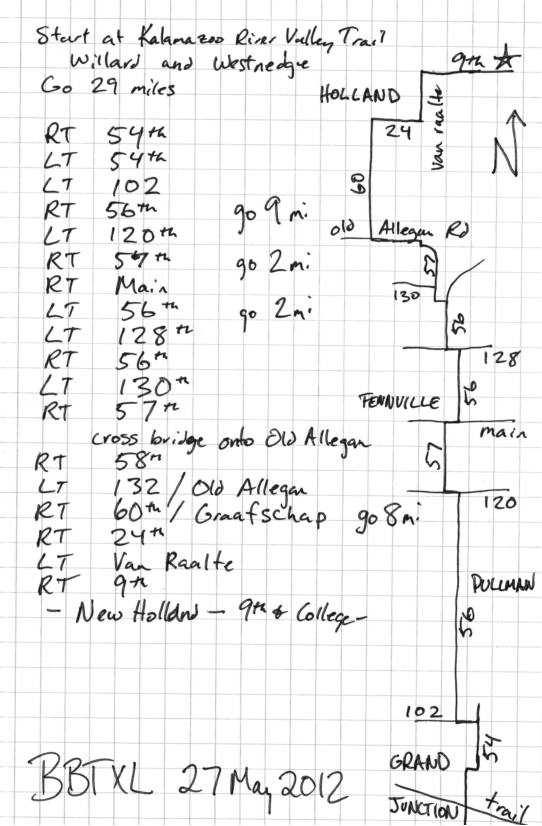 Start at Kalamazoo River Valley Trail
Willard and Westnedge
Go 29 miles
RT 54th
LT 54th
LT 102
RT 56th go 9 mi
LT 120th
RT 57th go 2 mi
RT Main
LT 56th go 2 mi
LT 128th
RT 56th
LT 130th
RT 57th
cross bridge onto Old Allegan
RT 58th
LT 132 / Old Allegan
RT 60th / Graafschap go 8 mi
RT 24th
LT Van Raalte
RT 9th
- New Holland - 9th & College -
BBTXL 27 May 2012
9th
HOLLAND
van raalte
24
N
60
old Allegan Rd
57
130
56
128
56
FENNVILLE
main
57
120
PULLMAN
56
102
54
GRAND
JUNCTION
trail